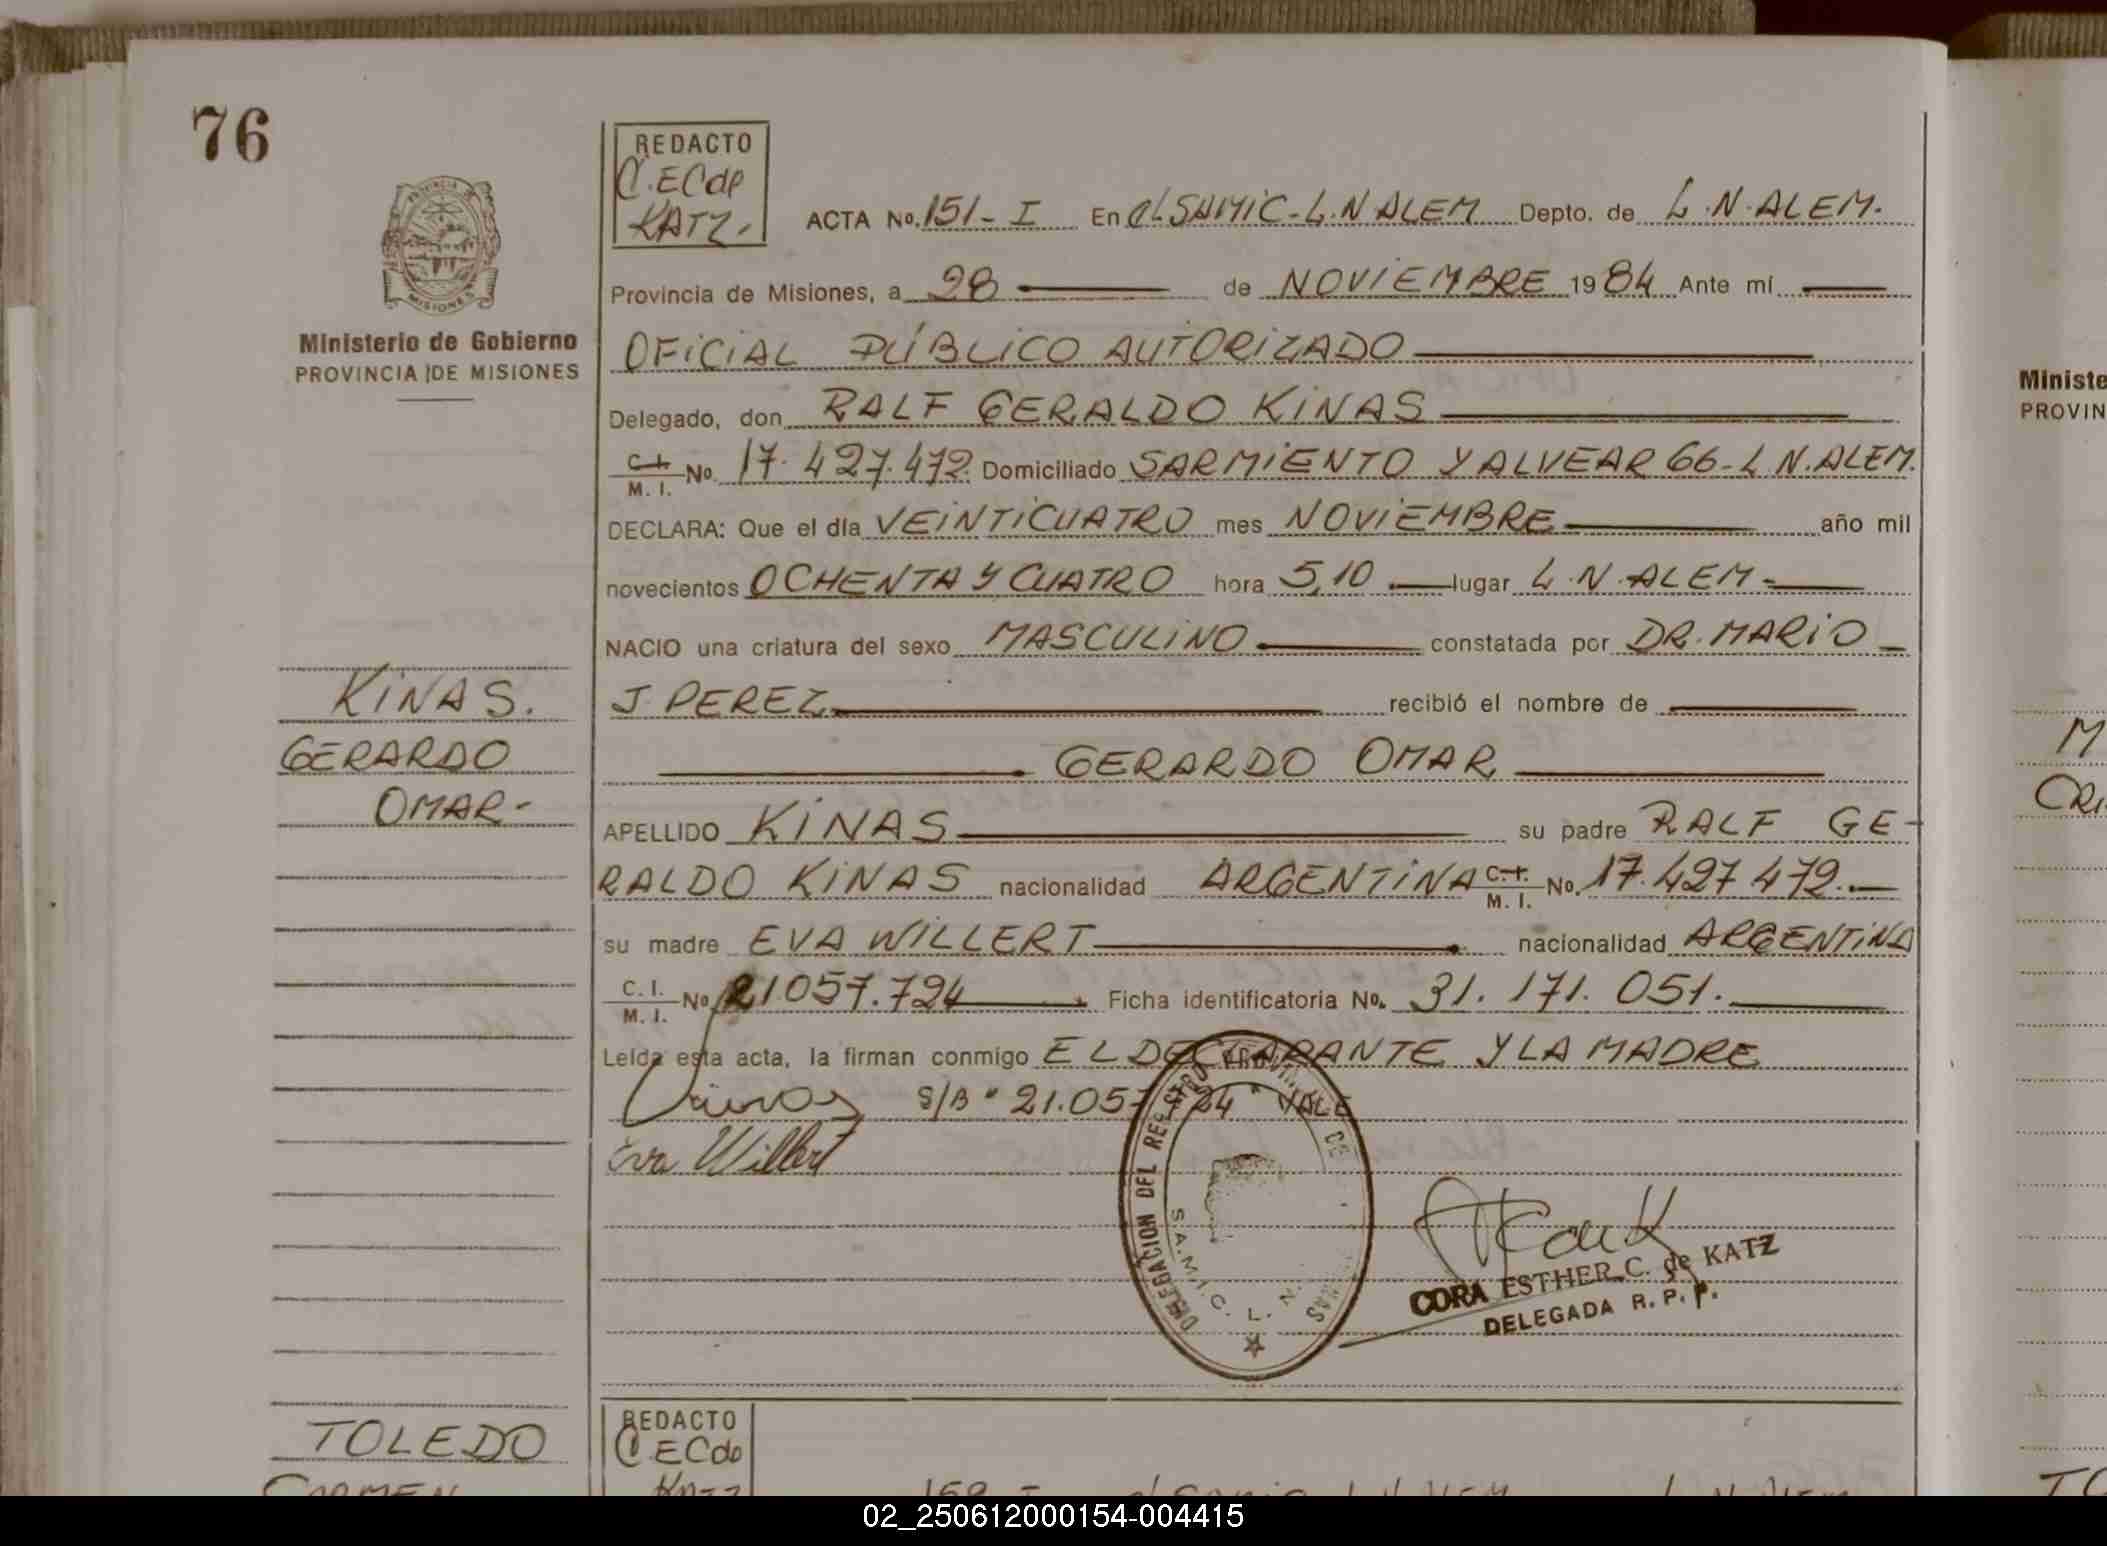 76
REDACTO
C.ECde
KATZ.
ACTA No. 151- I En el SAMIC-L.N ALEM Depto. de L.N.ALEM.
Provincia de Misiones, a 28 de NOVIEMBRE 1984 Ante mí
PROVINCIA DE MISIONES
Ministerio de Gobierno
PROVINCIA DE MISIONES
OFICIAL PÚBLICO AUTORIZADO
Delegado, don RALF GERALDO KINAS
C.I. M. I. No. 17.427.472. Domiciliado SARMIENTO Y ALVEAR 66-L N.ALEM.
DECLARA: Que el día VEINTICUATRO mes NOVIEMBRE año mil
novecientos OCHENTA Y CUATRO hora 5,10 lugar L.N.ALEM-
NACIO una criatura del sexo MASCULINO constatada por DR. MARIO
J. PEREZ recibió el nombre de
GERARDO OMAR
KINAS.
GERARDO
OMAR-
APELLIDO KINAS su padre RALF GE-
RALDO KINAS nacionalidad ARGENTINA C.I. M. I. No. 17.427.472.
su madre EVA WILLERT nacionalidad ARGENTINA
C. I. M. I. No. 21.057.724 Ficha identificatoria No. 31.171.051.
Leída esta acta, la firman conmigo EL DECLARANTE Y LA MADRE
S/B " 21.057.724 " VALE
Eva Willert
DELEGACION DEL REGISTRO PROVINCIAL DE
S.A.M.I.C. L. N.
CORA ESTHER C. de KATZ
DELEGADA R. P. P.
TOLEDO
CARMEN
REDACTO
C ECde
KATZ
Ministe
PROVIN
M
CRI
TO
02_250612000154-004415